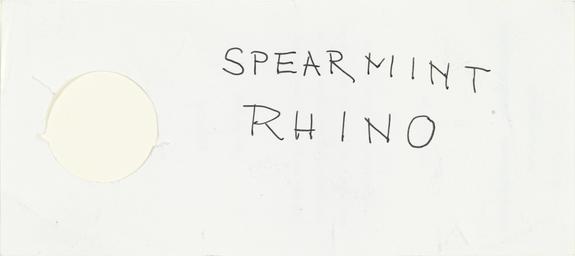 SPEARMINT
RHINO